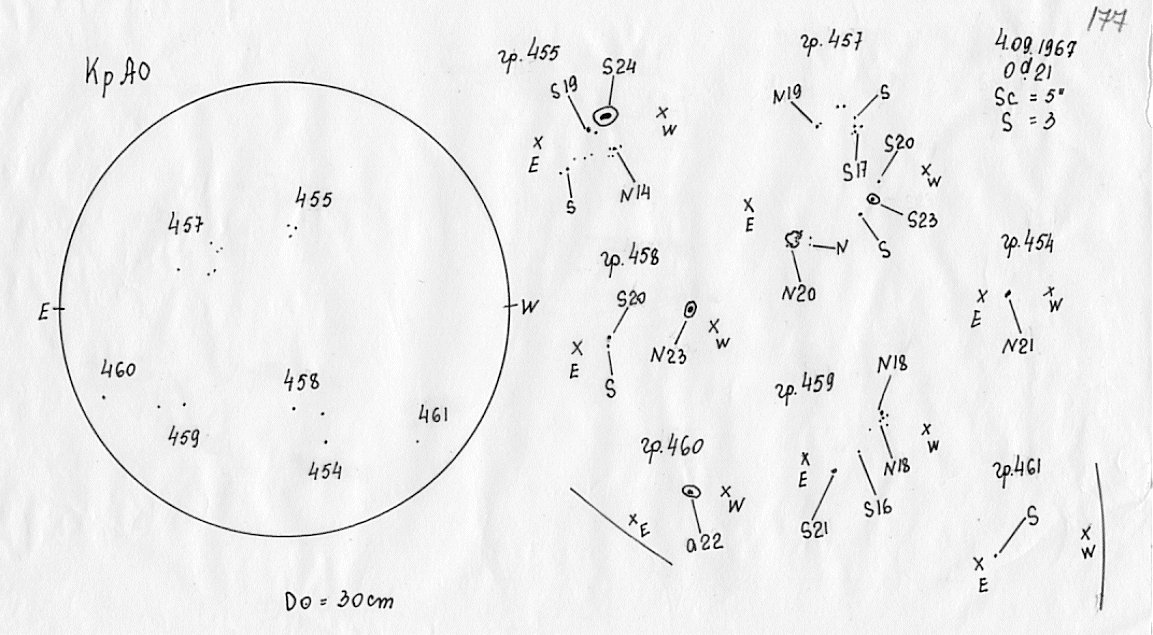 177
КрАО
455
457
E
W
460
458
461
459
454
D⊙ = 30cm
гр.455
S24
S19
x
W
x
E
S
N14
гр.457
N19
S
S20
S17
x
W
x
E
S23
N
S
N20
4.09.1967
0d.21
Sc = 5"
S = 3
гр.458
S20
x
E
N23
x
W
S
гр.454
x
E
x
W
N21
гр.459
N18
x
W
x
E
N18
S16
S21
гр.460
x
W
x
E
a22
гр.461
S
x
W
x
E